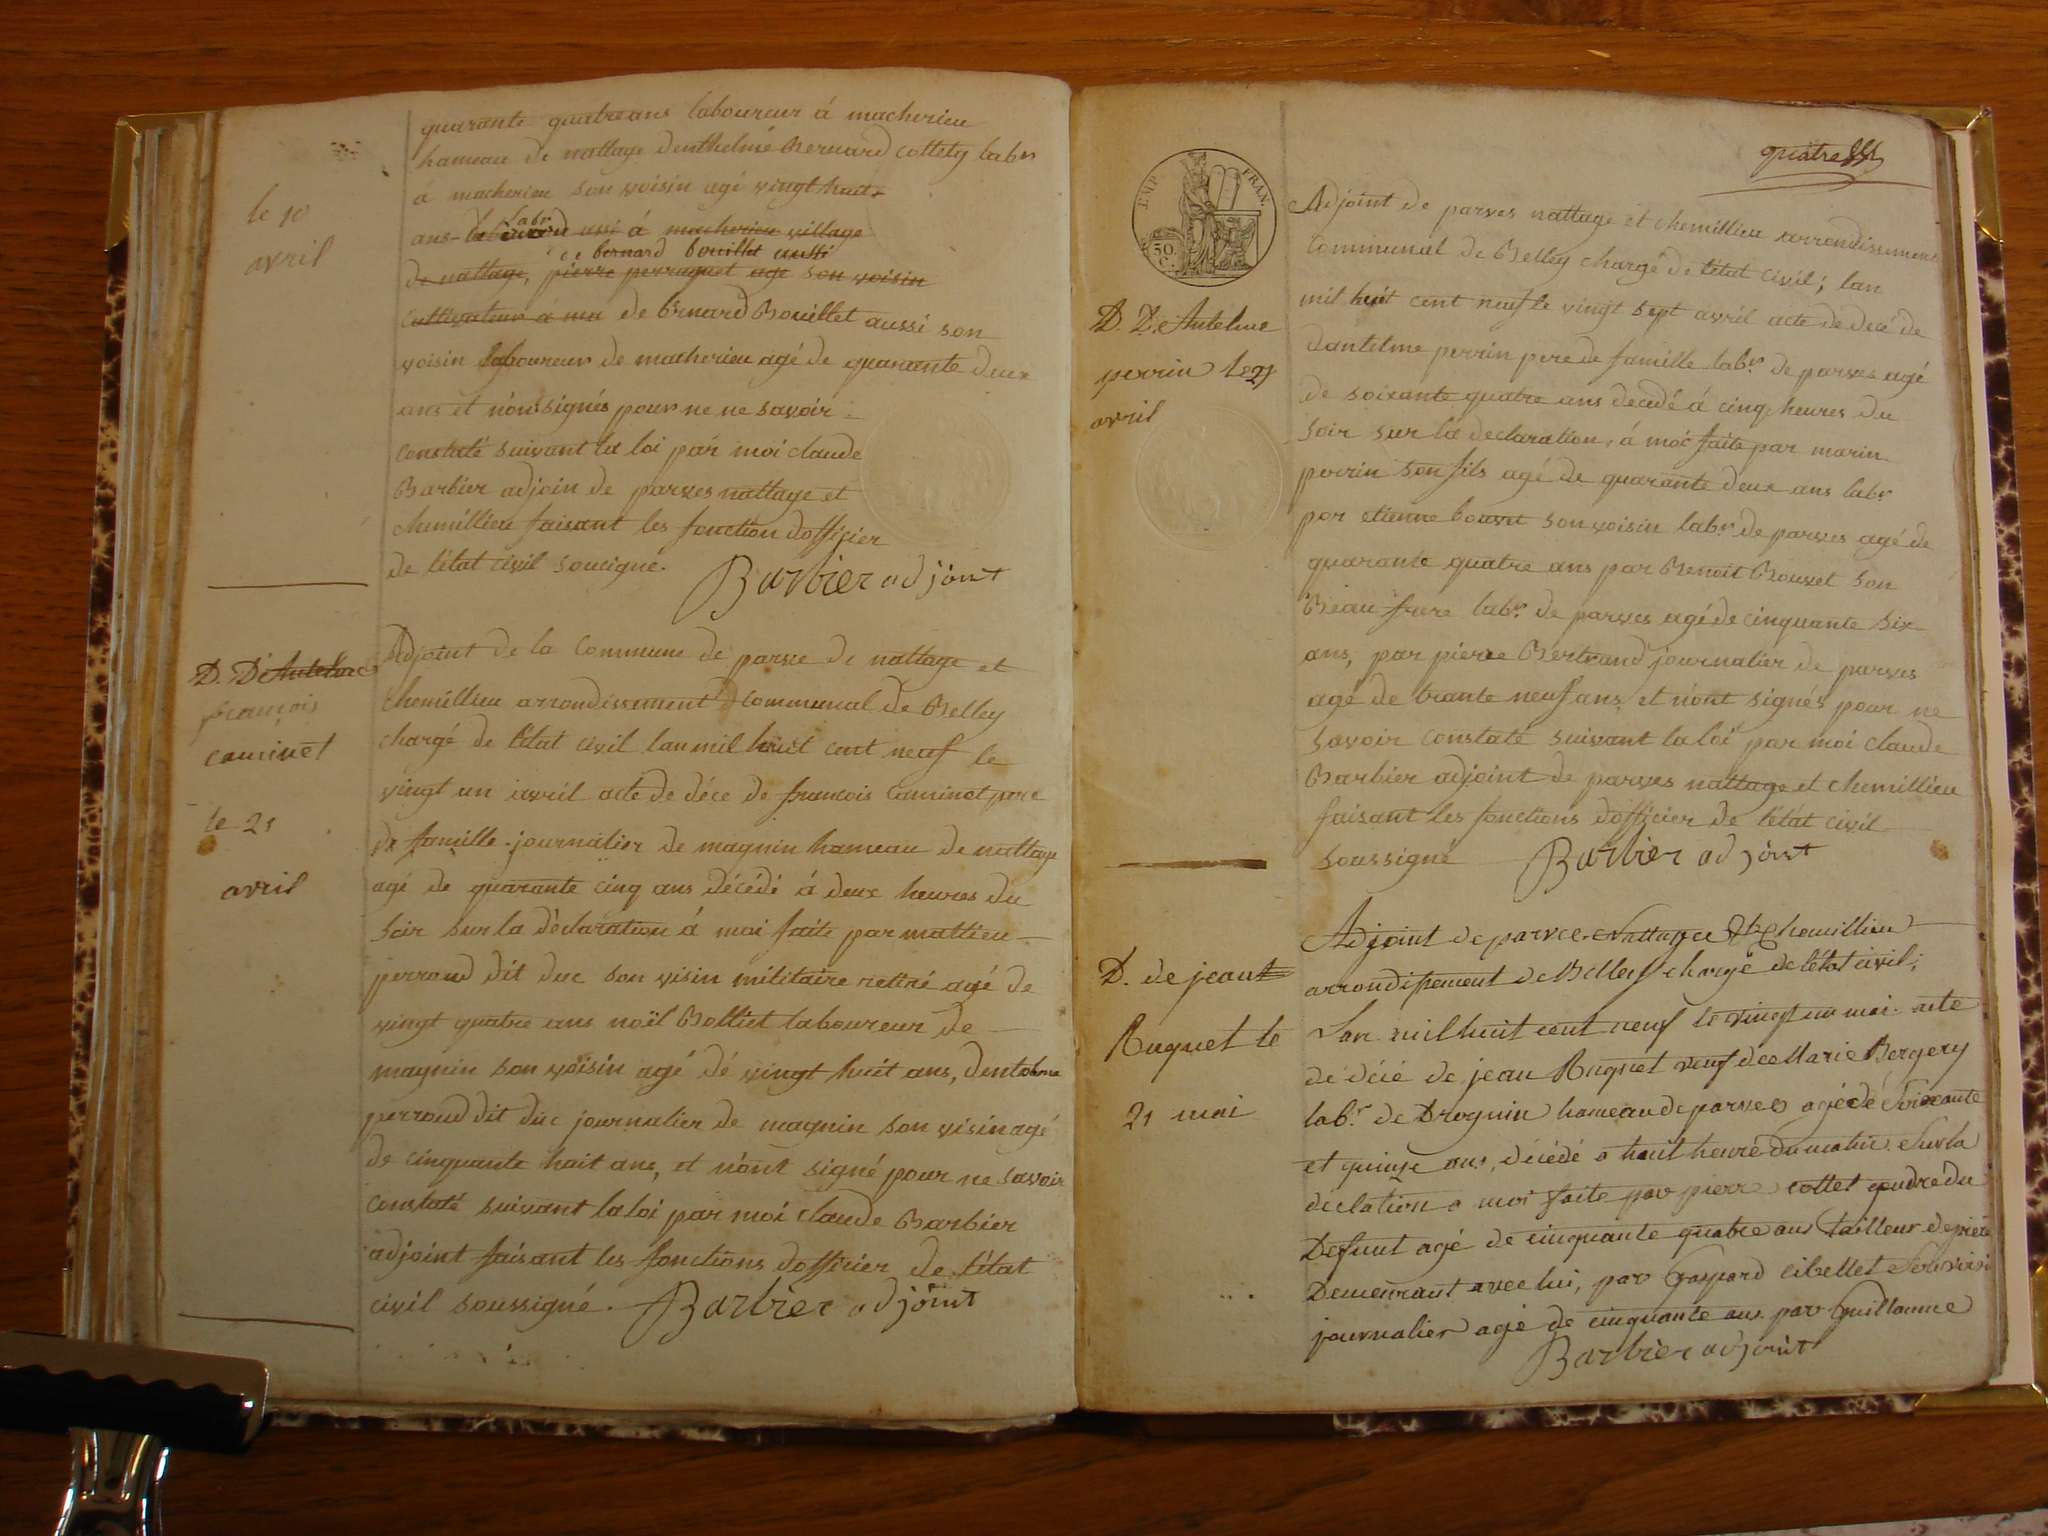 quarante quatre ans laboureur á macherieu
hameau de nattage denthelme Bernard collety labr
a macherieu son voisin agé vingt huit
ans labr aussi á macherieu village
ce bernard bouillet aussi
de nattage, pierre perraguet agé son voisin
cultivateur á ma de Brnard Bouillet aussi son
voisin laboureur de macherieu agé de quarante deux
ans et n'ont signés pour ne ne savoir
constaté suivant la loi par moi claude
Barbier adjoin de parves nattage et
chemillieu faisant les fonction dofficier
de l'état civil soucigné.
Barbier adjoint
le 10
avril
D. D'Antelme
françois
caminet
le 21
avril
Adjoint de la Commune de parve de nattage et
chemillieu arrondissement communal de Belley
chargé de l'état civil lan mil huit cent neuf le
vingt un avril acte de déce de francois Caminet pere
de famille journalier de magnin hameau de nattage
agé de quarante cinq ans décédé á deux heures du
soir sur la déclaration á moi faite par mattieu
perroud dit duc son visin militaire retiré agé de
vingt quatre ans noël Bolliet laboureur de
magnin son voisin agé dé vingt huit ans, dentelme
perroud dit duc journalier de magnin son visin agé
de cinquante huit ans, et n'ont signé pour ne savoir
constaté suivant la loi par moi claude Barbier
adjoint faisant les fonctions dofficier de l'état
civil soussigné. Barbier adjoint
quatre
EMP. FRAN.
50 C.
D. D'Antelme
perrin le 27
avril
Adjoint de parves nattage et chemillieu arrondissement
communal de Belley chargé de l'état civil; lan
mil huit cent neuf le vingt sept avril acte de decé de
dantelme perrin pere de famille labr. de parves agé
de soixante quatre ans decedé á cinq heures du
soir sur la declaration, á moi faite par marin
perrin son fils agé de quarante deux ans labr.
par etienne bouvet son voisin labr. de parves agé de
quarante quatre ans par Benoit Bouvet son
Beau frere labr. de parves agé de cinquante six
ans, par pierre Bertrand journalier de parves
agé de trante neuf ans et n'ont signés pour ne
savoir constaté suivant la loi par moi claude
Barbier adjoint de parves nattage et chemillieu
faisant les fonctions dofficier de l'état civil
soussigné Barbier adjoint
D. de jean
Ruguet le
21 mai
Adjoint de parves Nattage & Chemillieu
arrondissement de Belley chargé de l'état civil;
Lan mil huit cent neuf le vingt un mai acte
de décé de jean Ruguet veuf de Marie Bergery
labr. de Drognin hameau de parves agé de soixante
et quinze ans, décédé a huit heure du matin Sur la
déclation a moi faite par pierre collet gendre du
Defunt agé de cinquante quatre ans tailleur de pierre
Demeurant avec lui, par Gaspard cibellet Son voisin
journalier agé de cinquante ans par Guillaume
Barbier adjoint